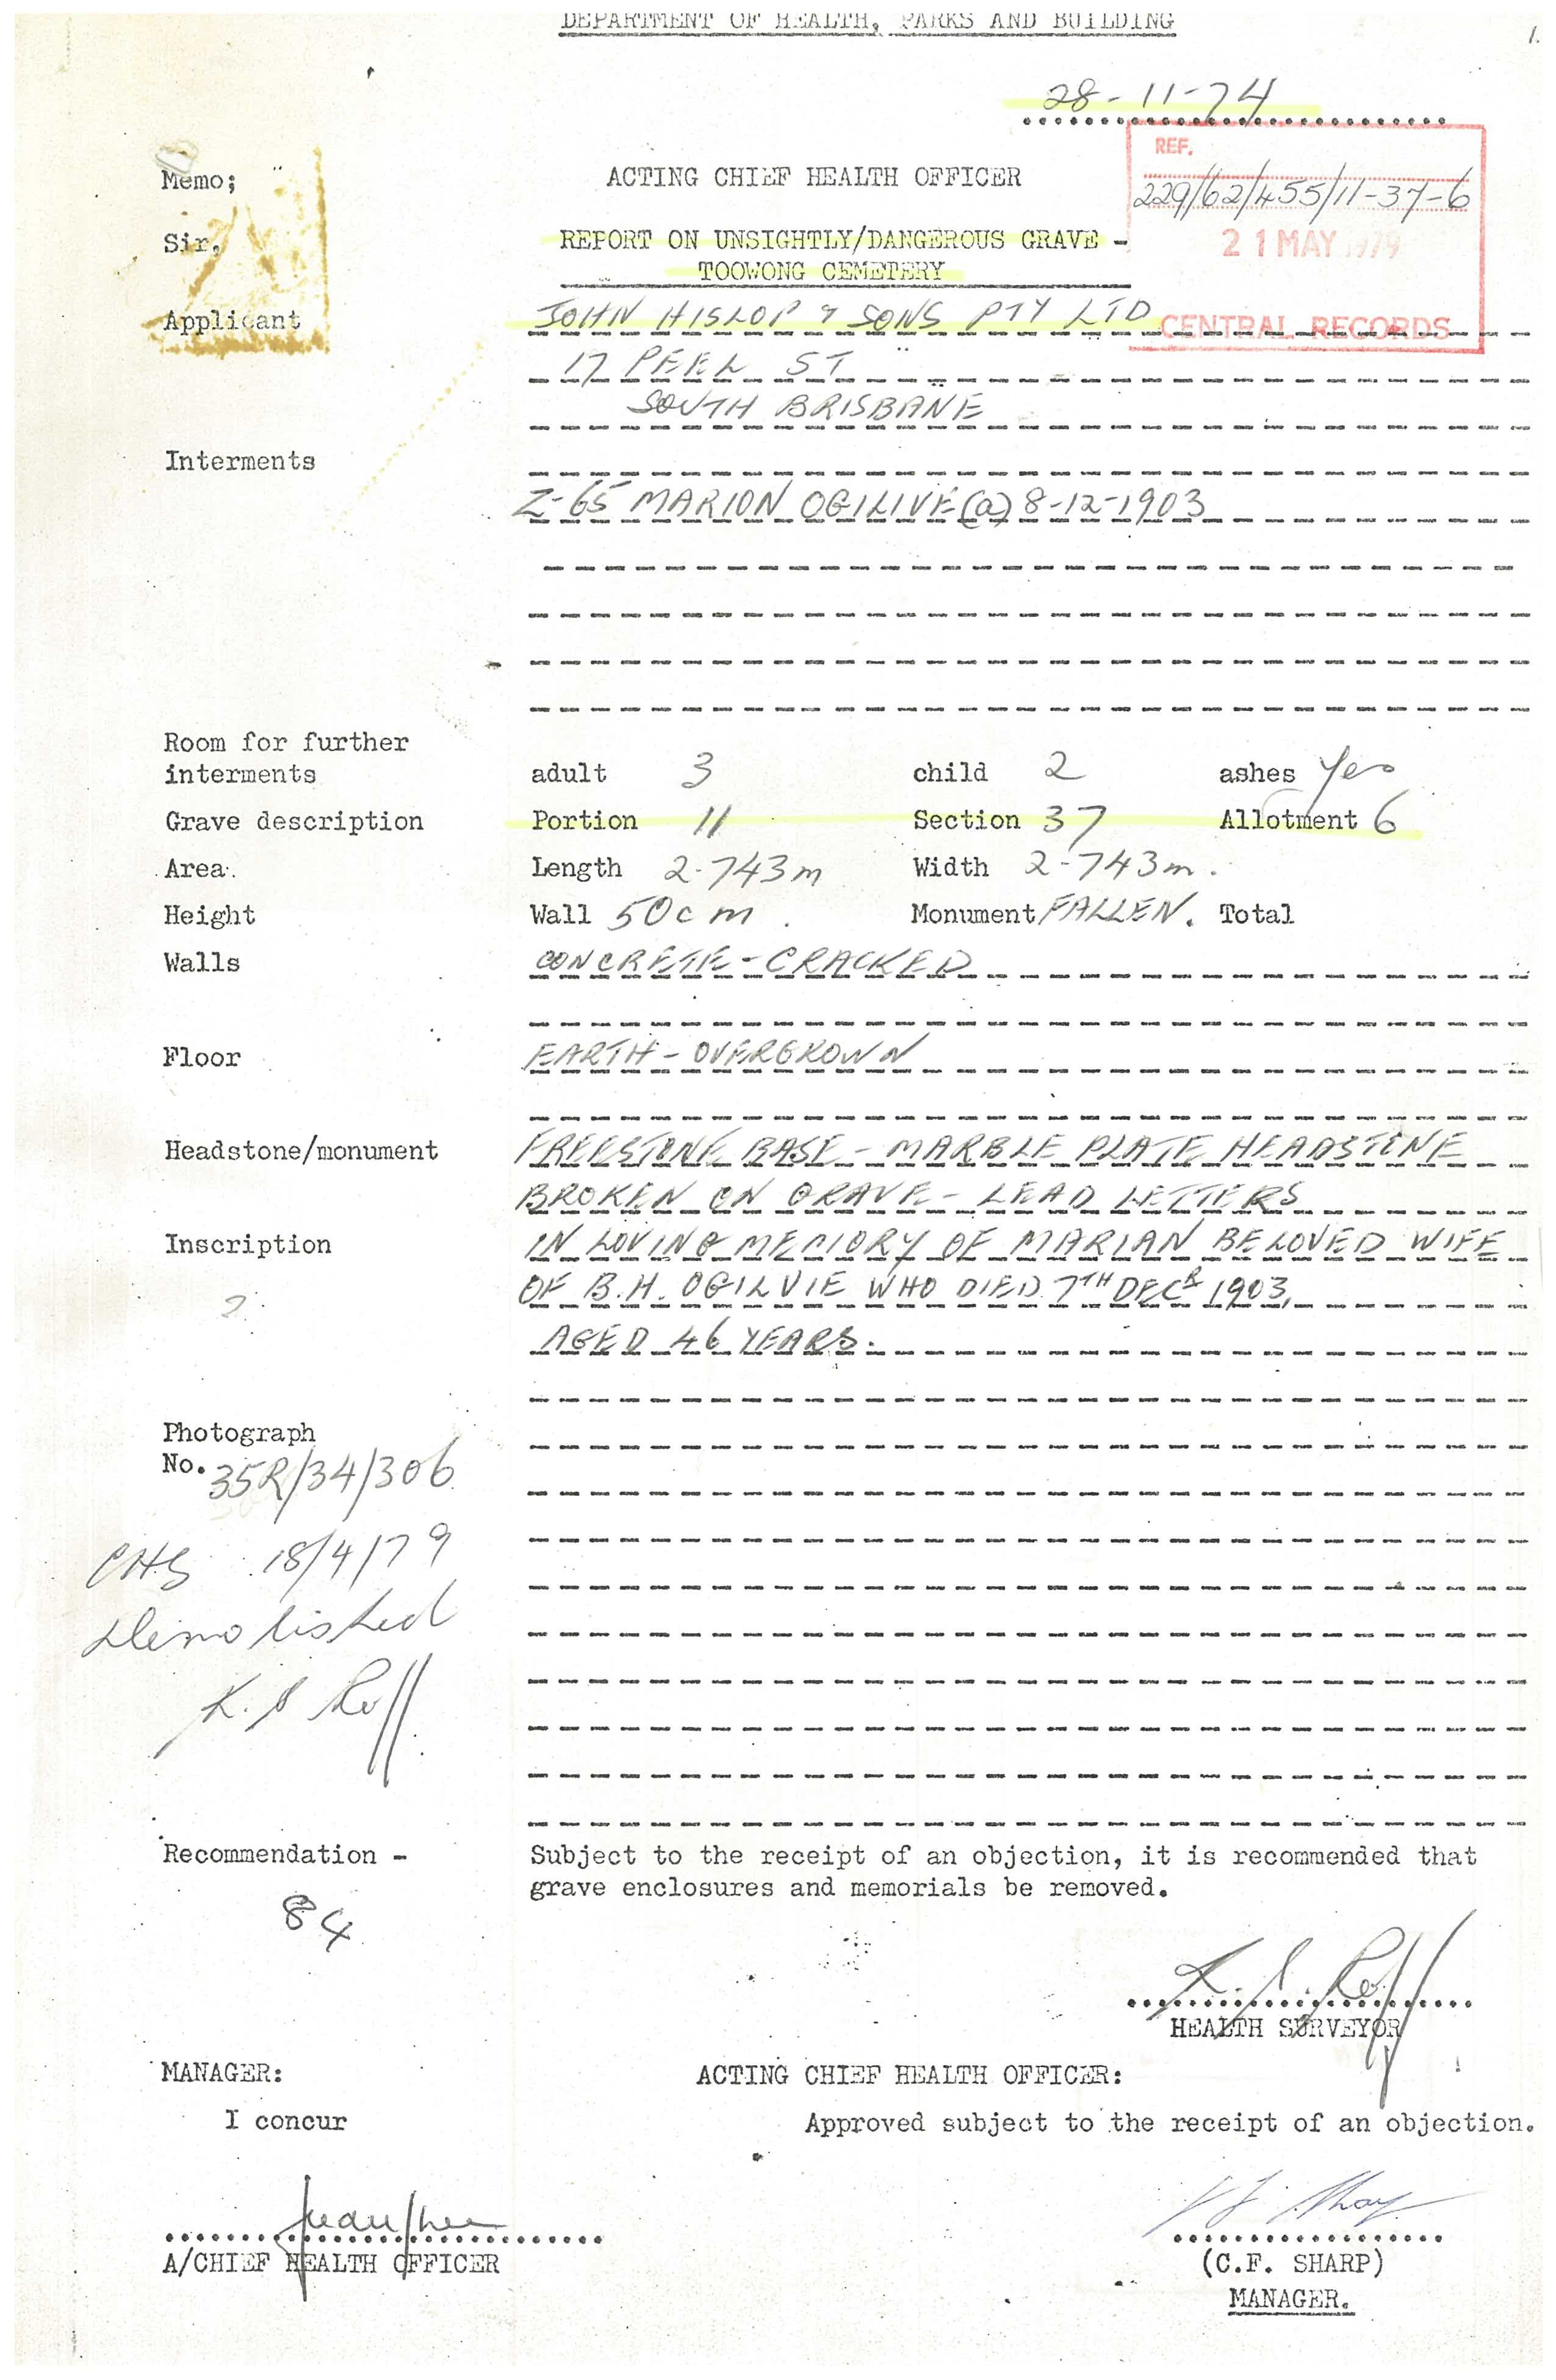 DEPARTMENT OF HEALTH, PARKS AND BUILDING
1.
28-11-74
REF.
229/62/455/11-37-6
21 MAY 1979
CENTRAL RECORDS
Memo; ACTING CHIEF HEALTH OFFICER
Sir, REPORT ON UNSIGHTLY/DANGEROUS GRAVE -
TOOWONG CEMETERY
Applicant JOHN HISLOP & SONS PTY LTD
17 PEEL ST
SOUTH BRISBANE
Interments
Z-65 MARION OGILIVE (a) 8-12-1903
Room for further
interments adult 3 child 2 ashes Yes
Grave description Portion 11 Section 37 Allotment 6
Area Length 2.743m Width 2-743m.
Height Wall 50cm. Monument FALLEN. Total
Walls CONCRETE - CRACKED
Floor EARTH - OVERGROWN
Headstone/monument FREESTONE BASE - MARBLE PLATE HEADSTONE
BROKEN ON GRAVE - LEAD LETTERS
Inscription IN LOVING MEMORY OF MARIAN BELOVED WIFE
OF B.H. OGILVIE WHO DIED 7TH DECR 1903,
AGED 46 YEARS.
Photograph
No. 35R/34/306
CHS 18/4/79
Demolished
K. S Roff
Recommendation - Subject to the receipt of an objection, it is recommended that
grave enclosures and memorials be removed.
84
K. S. Roff
HEALTH SURVEYOR
MANAGER: ACTING CHIEF HEALTH OFFICER:
I concur Approved subject to the receipt of an objection.
A/CHIEF HEALTH OFFICER (C.F. SHARP)
MANAGER.